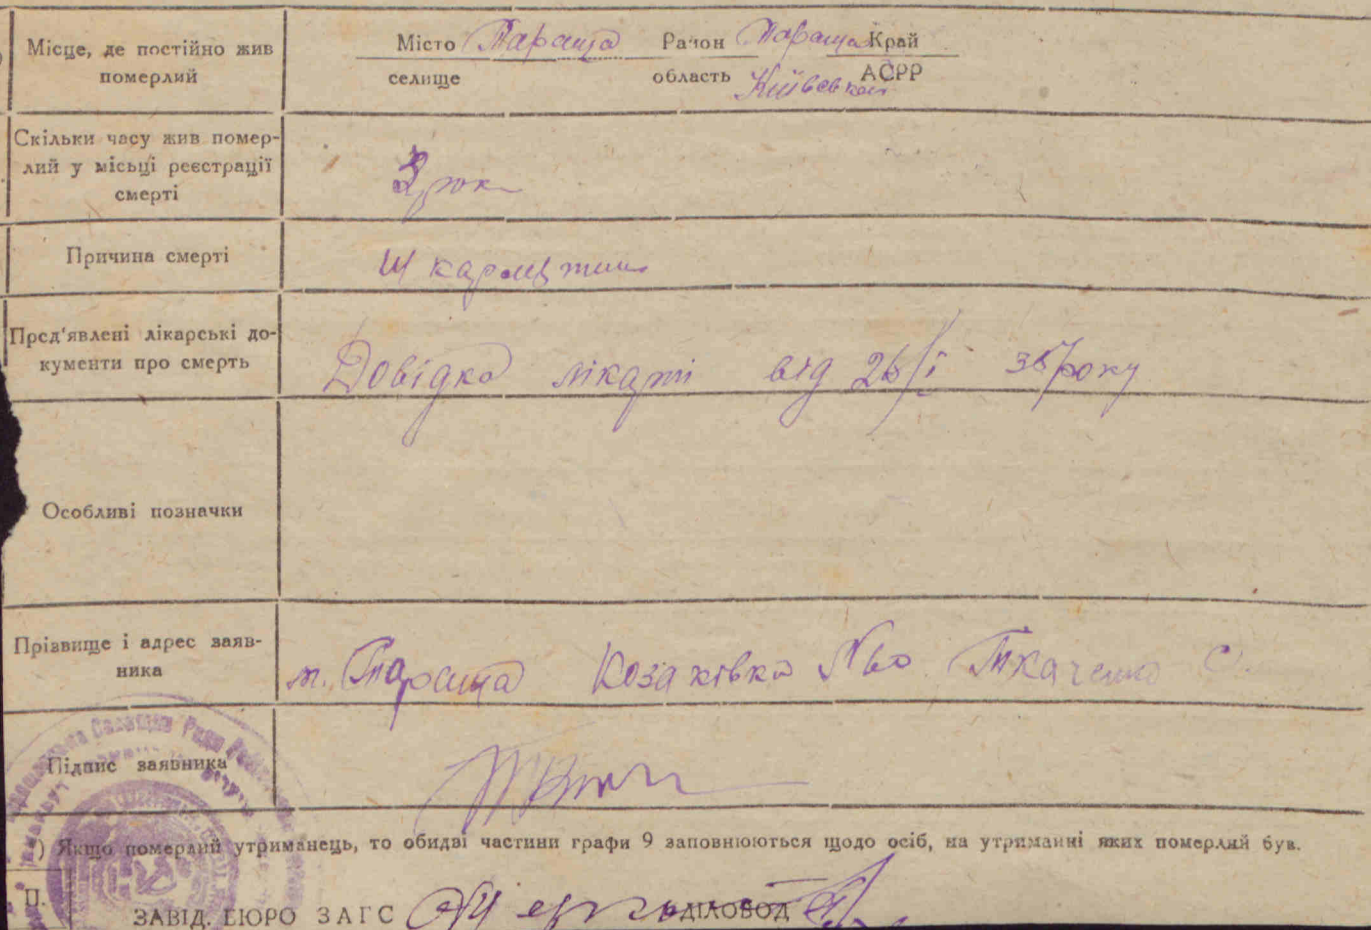 Місце, де постійно жив
померлий
Місто Тараща Район Тараща Край
селище область Київської АСРР
Скільки часу жив помер-
лий у місьці реєстрації
смерті
3 рок
Причина смерті
Шкарлятина
Пред'явлені лікарські до-
кументи про смерть
Довідка лікаря від 26/І року
Особливі позначки
Прізвище і адрес заяв-
ника
м. Тараща Козаківка Ткаченко С.
Підпис заявника
) Якщо померлий утриманець, то обидві частини графи 9 заповнюються щодо осіб, на утриманні яких померлий був.
П.
ЗАВІД. БЮРО ЗАГС ДІЛОВОД